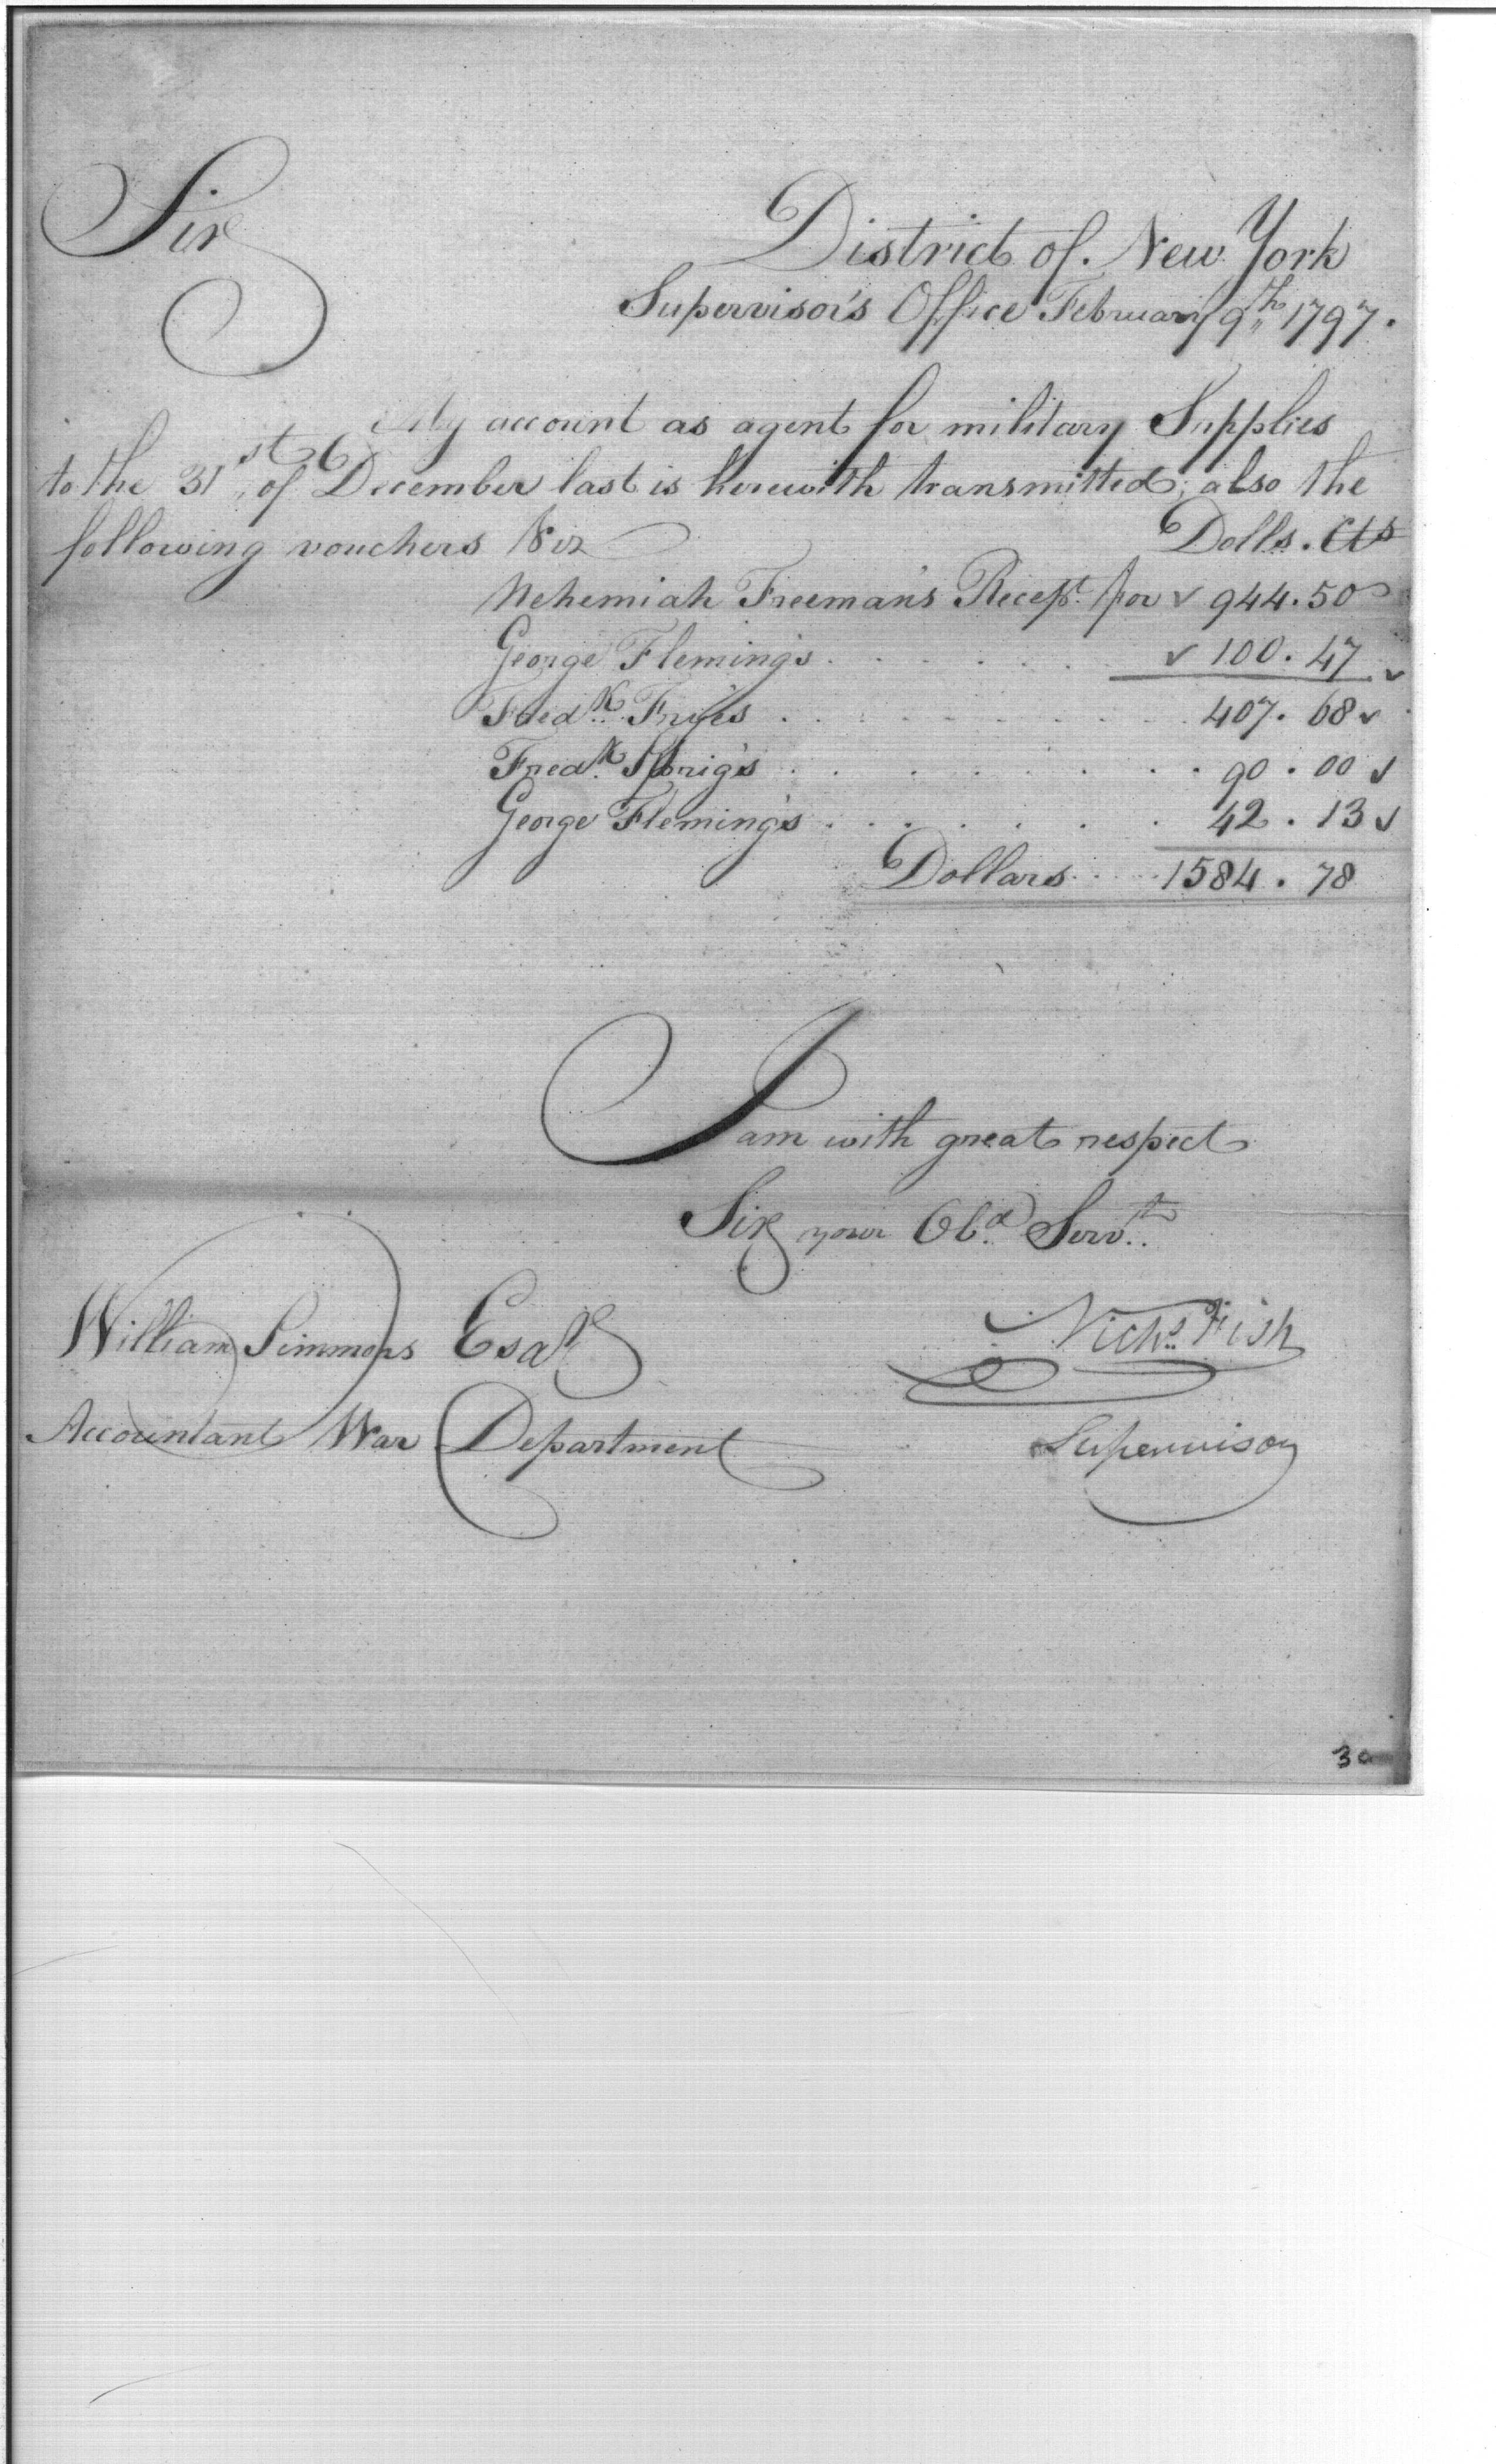 Sir
District of New York
Supervisor's Office February 9th 1797.
My account as agent for military Supplies
to the 31st of December last is herewith transmitted; also the
following vouchers Viz
Dolls. Cts
Nehemiah Freeman's Recept. for ✓ 944.50
George Fleming's . . . . . ✓ 100.47 ✓
Fredk. . . . . . 407.68 ✓
Fredk. . . . . . 90.00 ✓
George Fleming's . . . . . 42.13 ✓
Dollars . . . . 1584.78
I am with great respect
Sir your Obd. Servt.
William Simmons Esqr
Nichs. Fish
Accountant War Department
Supervisor
30